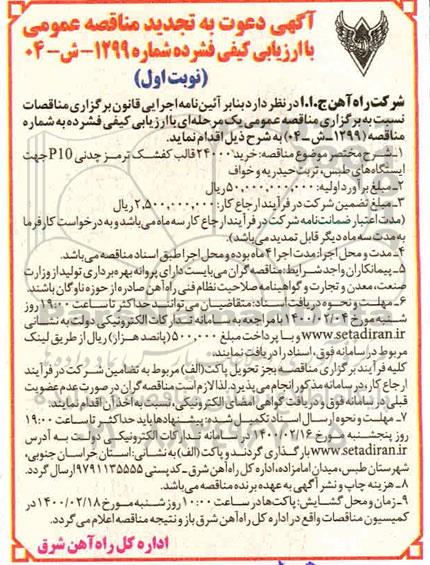 آگهی دعوت به تجدید مناقصه عمومی
با ارزیابی کیفی فشرده شماره ۱۲۹۹-ش-۰۴
(نوبت اول)
شرکت راه آهن ج.ا.ا در نظر دارد بنابر آئین نامه اجرایی قانون برگزاری مناقصات
نسبت به برگزاری مناقصه عمومی یک مرحله ای با ارزیابی کیفی فشرده به شماره
مناقصه (۱۲۹۹-ش-۰۴) به شرح ذیل اقدام نماید.
۱ـ شرح مختصر موضوع مناقصه: خرید ۲۴۰۰۰ قالب کفشک ترمز چدنی P10 جهت
ایستگاه های طبس، تربت حیدریه و خواف
۲ـ مبلغ برآورد اولیه: ۵۰,۰۰۰,۰۰۰,۰۰۰ ریال
۳ـ مبلغ تضمین شرکت در فرآیند ارجاع کار: ۲,۵۰۰,۰۰۰,۰۰۰ ریال
(مدت اعتبار ضمانت نامه شرکت در فرآیند ارجاع کار سه ماه می باشد و به درخواست کارفرما
به مدت سه ماه دیگر قابل تمدید می باشد).
۴ـ مدت و محل اجرا: مدت اجرا ۴ ماه بوده و محل اجرا طبق اسناد مناقصه می باشد.
۵ـ پیمانکاران واجد شرایط: مناقصه گران می بایست دارای پروانه بهره برداری تولید از وزارت
صنعت، معدن و تجارت و گواهینامه صلاحیت نظام فنی راه آهن صادره از حوزه ناوگان باشند
۶ـ مهلت و نحوه دریافت اسناد: متقاضیان می توانند حداکثر تا ساعت ۱۹:۰۰ روز
شنبه مورخ ۱۴۰۰/۰۲/۰۴ با مراجعه به سامانه تدارکات الکترونیکی دولت به نشانی
www.setadiran.ir و با پرداخت مبلغ ۵۰۰,۰۰۰ (پانصد هزار) ریال از طریق لینک
مربوط در سامانه فوق، اسناد را دریافت نمایند.
کلیه فرآیند برگزاری مناقصه بجز تحویل پاکت (الف) مربوط به تضامین شرکت در فرآیند
ارجاع کار، در سامانه مذکور انجام می پذیرد. لذا لازم است مناقصه گران در صورت عدم عضویت
قبلی در سامانه فوق و دریافت گواهی امضای الکترونیکی، نسبت به اخذ آن اقدام نمایند.
۷ـ مهلت و نحوه ارسال اسناد تکمیل شده: پیشنهادها باید حداکثر تا ساعت ۱۹:۰۰
روز پنجشنبه مورخ ۱۴۰۰/۰۲/۱۶ در سامانه تدارکات الکترونیکی دولت به آدرس
www.setadiran.ir بارگذاری گردند و پاکت (الف) به نشانی: استان خراسان جنوبی،
شهرستان طبس، میدان امامزاده، اداره کل راه آهن شرق - کد پستی ۹۷۹۱۱۳۵۵۵۵ ارسال گردد.
۸ـ هزینه چاپ و نشر آگهی به عهده برنده مناقصه می باشد.
۹ـ زمان و محل گشایش: پاکت ها در ساعت ۱۰:۰۰ روز شنبه مورخ ۱۴۰۰/۰۲/۱۸ در
کمیسیون مناقصات واقع در اداره کل راه آهن شرق باز و نتیجه مناقصه اعلام می گردد.
اداره کل راه آهن شرق